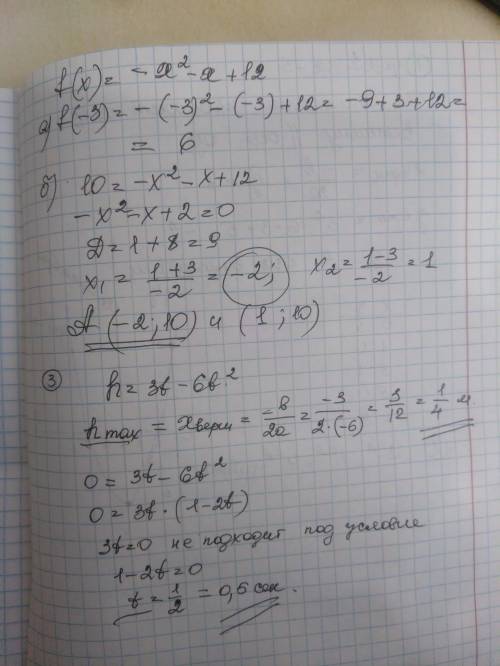 f(x) = -x² - x + 12
а) f(-3) = -(-3)² - (-3) + 12 = -9 + 3 + 12 =
= 6
б) 10 = -x² - x + 12
-x² - x + 2 = 0
D = 1 + 8 = 9
x₁ = (1+3)/(-2) = -2; x₂ = (1-3)/(-2) = 1
A (-2; 10) и (1; 10)
③ h = 3t - 6t²
h max = x верш = -b/2a = -3/(2·(-6)) = 3/12 = 1/4 м
0 = 3t - 6t²
0 = 3t · (1 - 2t)
3t = 0 не подходит под условие
1 - 2t = 0
t = 1/2 = 0,5 сек.